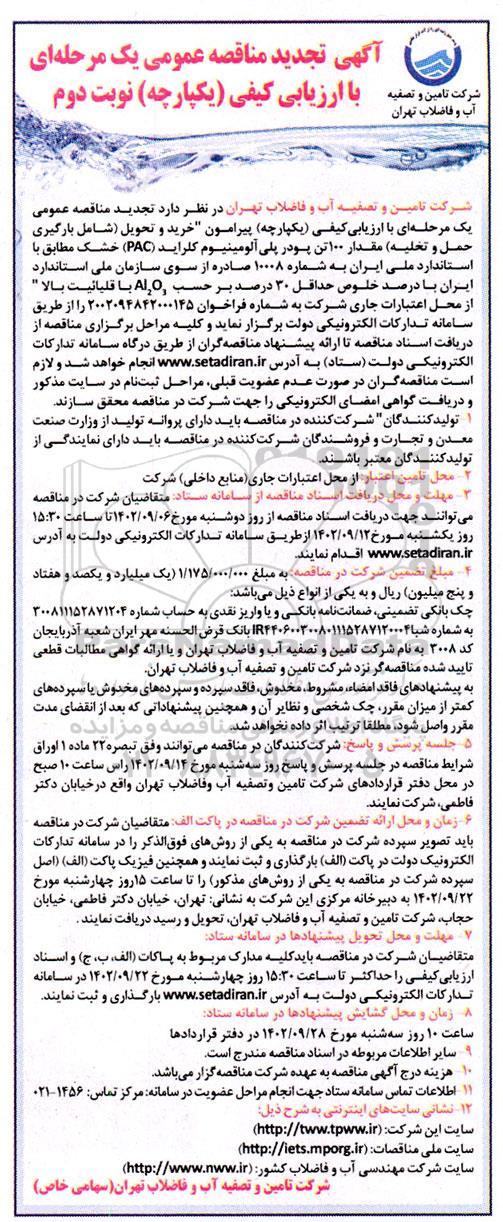 آگهی تجدید مناقصه عمومی یک مرحله‌ای
با ارزیابی کیفی (یکپارچه) نوبت دوم
شرکت تامین و تصفیه
آب و فاضلاب تهران
شرکت تامین و تصفیه آب و فاضلاب تهران در نظر دارد تجدید مناقصه عمومی
یک مرحله‌ای با ارزیابی‌کیفی (یکپارچه) پیرامون "خرید و تحویل (شامل بارگیری
حمل و تخلیه) مقدار ۱۰۰تن پودر پلی‌آلومینیوم کلراید (PAC) خشک مطابق با
استاندارد ملی ایران به شماره ۱۰۰۰۸ صادره از سوی سازمان ملی استاندارد
ایران با درصد خلوص حداقل ۳۰ درصد بر حسب Al₂O₃ با قلیائیت بالا "
از محل اعتبارات جاری شرکت به شماره فراخوان ۲۰۰۲۰۹۴۸۴۲۰۰۰۱۴۵ را از طریق
سامانه تدارکات الکترونیکی دولت برگزار نماید و کلیه مراحل برگزاری مناقصه از
دریافت اسناد مناقصه تا ارائه پیشنهاد مناقصه‌گران از طریق درگاه سامانه تدارکات
الکترونیکی دولت (ستاد) به آدرس www.setadiran.ir انجام خواهد شد و لازم
است مناقصه‌گران در صورت عدم عضویت قبلی، مراحل ثبت‌نام در سایت مذکور
و دریافت گواهی امضای الکترونیکی را جهت شرکت در مناقصه محقق سازند.
۱- تولیدکنندگان" شرکت‌کننده در مناقصه باید دارای پروانه تولید از وزارت صنعت
معدن و تجارت و فروشندگان شرکت‌کننده در مناقصه باید دارای نمایندگی از
تولیدکنندگان معتبر باشند.
۲- محل تأمین اعتبار: از محل اعتبارات جاری(منابع داخلی) شرکت
۳- مهلت و محل دریافت اسناد مناقصه از سامانه ستاد: متقاضیان شرکت در مناقصه
می‌توانند جهت دریافت اسناد مناقصه از روز دوشنبه مورخ۱۴۰۲/۰۹/۰۶تا ساعت ۱۵:۳۰
روز یکشنبه مورخ۱۴۰۲/۰۹/۱۲ ازطریق سامانه تدارکات الکترونیکی دولت به آدرس
www.setadiran.ir اقدام نمایند.
۴- مبلغ تضمین شرکت در مناقصه: به مبلغ ۱/۱۷۵/۰۰۰/۰۰۰ (یک میلیارد و یکصد و هفتاد
و پنج میلیون) ریال و به یکی از انواع ذیل می‌باشد:
چک بانکی تضمینی، ضمانت‌نامه بانکی و یا واریز نقدی به حساب شماره ۳۰۰۸۱۱۱۵۲۸۷۱۲۰۴
به شماره شبا IR۴۴۰۶۰۰۳۰۰۸۰۱۱۱۵۲۸۷۱۲۰۰۰۴ بانک قرض‌الحسنه مهر ایران شعبه آذربایجان
کد ۳۰۰۸ به نام شرکت تامین و تصفیه آب و فاضلاب تهران و یا ارائه گواهی مطالبات قطعی
تایید شده مناقصه‌گر نزد شرکت تامین و تصفیه آب و فاضلاب تهران.
به پیشنهادهای فاقد امضاء، مشروط، مخدوش، فاقد سپرده و سپرده‌های مخدوش یا سپرده‌های
کمتر از میزان مقرر، چک شخصی و نظایر آن و همچنین پیشنهاداتی که بعد از انقضای مدت
مقرر واصل شود، مطلقا ترتیب اثر داده نخواهد شد.
۵- جلسه پرسش و پاسخ: شرکت‌کنندگان در مناقصه می‌توانند وفق تبصره۲۲ ماده ۱ اوراق
شرایط مناقصه در جلسه پرسش و پاسخ روز سه‌شنبه مورخ ۱۴۰۲/۰۹/۱۴ راس ساعت ۱۰ صبح
در محل دفتر قراردادهای شرکت تامین وتصفیه آب وفاضلاب تهران واقع درخیابان دکتر
فاطمی، شرکت نمایند.
۶-زمان و محل ارائه تضمین شرکت در مناقصه در پاکت الف: متقاضیان شرکت در مناقصه
باید تصویر سپرده شرکت در مناقصه به یکی از روش‌های فوق‌الذکر را در سامانه تدارکات
الکترونیک دولت در پاکت (الف) بارگذاری و ثبت نمایند و همچنین فیزیک پاکت (الف) (اصل
سپرده شرکت در مناقصه به یکی از روش‌های مذکور) را تا ساعت ۱۵روز چهارشنبه مورخ
۱۴۰۲/۰۹/۲۲ به دبیرخانه مرکزی این شرکت به نشانی: تهران، خیابان دکتر فاطمی، خیابان
حجاب، شرکت تامین و تصفیه آب و فاضلاب تهران، تحویل و رسید دریافت نمایند.
۷- مهلت و محل تحویل پیشنهادها در سامانه ستاد:
متقاضیان شرکت در مناقصه بایدکلیه مدارک مربوط به پاکات (الف، ب، ج) و اسناد
ارزیابی‌کیفی را حداکثر تا ساعت ۱۵:۳۰ روز چهارشنبه مورخ ۱۴۰۲/۰۹/۲۲ در سامانه
تدارکات الکترونیکی دولت به آدرس www.setadiran.ir بارگذاری و ثبت نمایند.
۸- زمان و محل گشایش پیشنهادها در سامانه ستاد:
ساعت ۱۰ روز سه‌شنبه مورخ ۱۴۰۲/۰۹/۲۸ در دفتر قراردادها
۹- سایر اطلاعات مربوطه در اسناد مناقصه مندرج است.
۱۰- هزینه درج آگهی مناقصه به عهده شرکت مناقصه‌گزار می‌باشد.
۱۱- اطلاعات تماس سامانه ستاد جهت انجام مراحل عضویت در سامانه: مرکز تماس: ۱۴۵۶-۰۲۱
۱۲- نشانی سایت‌های اینترنتی به شرح ذیل:
سایت این شرکت: (http://tww.tpww.ir)
سایت ملی مناقصات: (http://iets.mporg.ir)
سایت شرکت مهندسی آب و فاضلاب کشور: (http://www.nww.ir)
شرکت تامین و تصفیه آب و فاضلاب تهران(سهامی خاص)